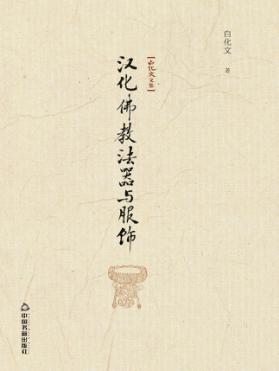 白化文 著
【白化文文集】
汉化佛教法器与服饰
中国书籍出版社